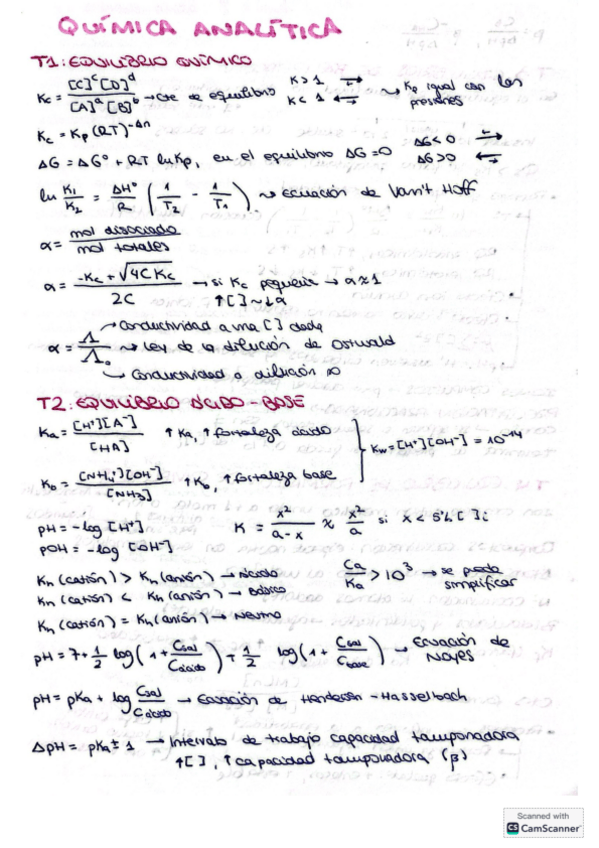 QUÍMICA ANALÍTICA
T1: EQUILIBRIO QUÍMICO
Kc = [C]ᶜ[D]ᵈ / [A]ᵃ[B]ᵇ → Cte de equilibrio K>1 ⇄ K<1 ⇄ ↝ Kp igual con las presiones
Kc = Kp (RT)^-Δn ΔG<0 ΔG>0
ΔG = ΔG° + RT ln Kp, en el equilibrio ΔG=0
ln K1/K2 = ΔH°/R (1/T2 - 1/T1) ↝ Ecuación de Van't Hoff
α = mol disociado / mol totales
α = -Kc + √4CKc / 2C → si Kc pequeña → α≈1
↑[ ] ~ ↓α
→ Conductividad a una [ ] dada
α = Λ/Λo ↝ Ley de la dilución de Ostwald
→ Conductividad a dilución ∞
T2: EQUILIBRIO ÁCIDO-BASE
Ka = [H⁺][A⁻] / [HA] ↑Ka, ↑fortaleza ácido
Kw = [H⁺][OH⁻] = 10⁻¹⁴
Kb = [NH4⁺][OH⁻] / [NH3] ↑Kb, ↑fortaleza base
pH = -log [H⁺] K = x²/a-x ≈ x²/a si x < 5% [ ]i
pOH = -log [OH⁻]
Kh (catión) > Kh (anión) → Ácido Ca/Ka > 10³ → se puede simplificar
Kh (catión) < Kh (anión) → Básico
Kh (catión) = Kh (anión) → Neutro
pH = 7 + 1/2 log (1 + Csal/Cácido) + 1/2 log (1 + Csal/Cbase) → Ecuación de Noyes
pH = pKa + log Csal/Cácido → Ecuación de Henderson-Hasselbach
ΔpH = pKa ± 1 → Intervalo de trabajo capacidad tamponadora
↑[ ], ↑capacidad tamponadora (β)
Scanned with
CS CamScanner